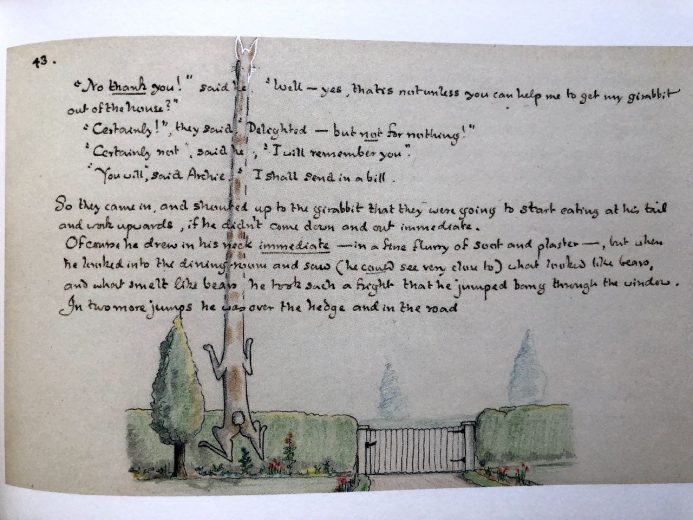 43.
"No thank you!" said he. "Well — yes, that is not unless you can help me to get my girabbit
out of the house?"
"Certainly!", they said "Delighted — but not for nothing!"
"Certainly not", said he, "I will remember you".
"You will", said Archie. "I shall send in a bill.
So they came in, and shouted up to the girabbit that they were going to start eating at his tail
and work upwards, if he didn't come down and out immediate.
Of course he drew in his neck immediate — in a fine flurry of soot and plaster —, but when
he looked into the dining-room and saw (he could see very close to) what looked like bears,
and what smelt like bears he took such a fright that he jumped bang through the window.
In two more jumps he was over the hedge and in the road